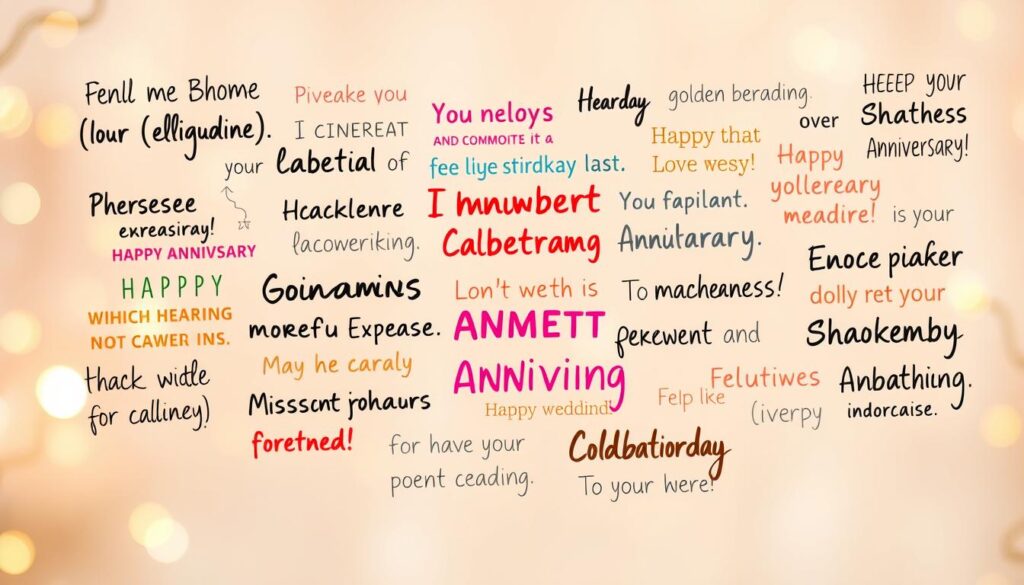 Fenll me Bhome
(lour (elligudine).
Piveake you
I CINEREAT
your labetial of
You neloys
AND COMMOITE it a
fee liye stirdkay last.
Hearday golden berading.
Happy that over
Love wesy!
HEEEP YOUR
Shathess
Anniversary!
Phersesee
exreasiray!
HAPPY ANNIVSARY
Hcacklenre
lacoweriking.
I mnuwbert
Calbetramg
You fapilant.
Annitarary.
Happy
yollereary
meadire! is your
HAPPPY
WIHICH HEARING
NOT CAWER INS.
Goinamins
morefu Expease.
Lon't weth is
ANMETT
ANNiViing
Happy weddind!
To macheaness!
pekewent and
Enoce piaker
dolly ret your
Shaokemby
thack widle
for calliney)
May he caraly
Misscnt johaurs
foretned!
for have your
poent ceading.
Coldbatiorday
To your were!
Felutiwes
Felp like
(iverpy
Anbathing.
indorcaise.